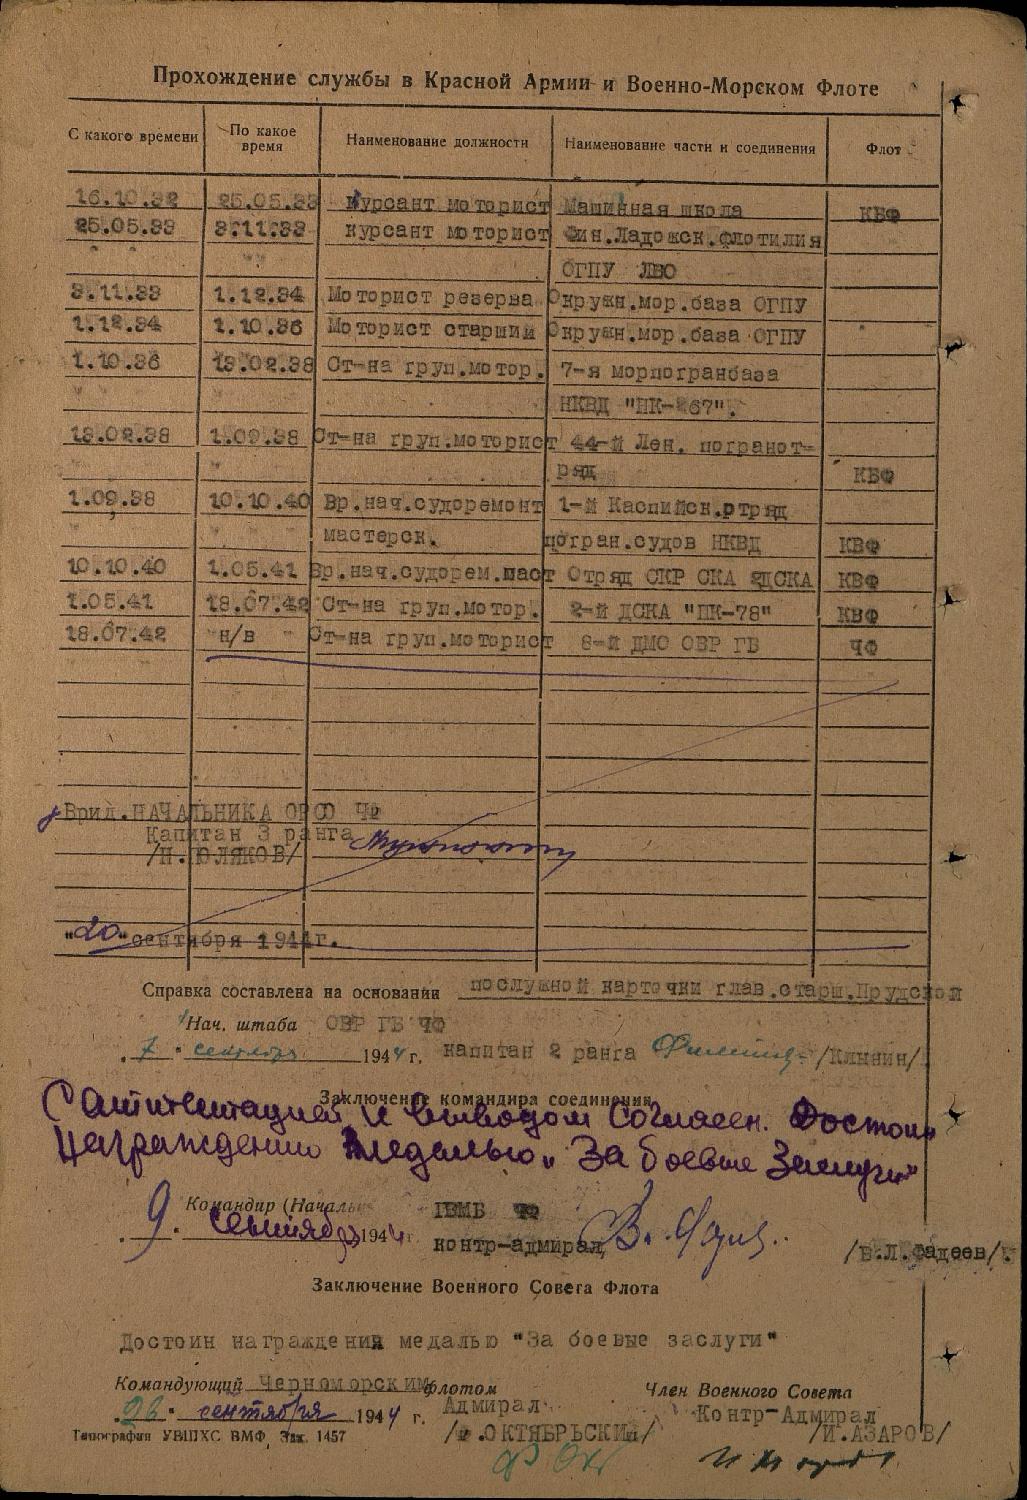 Прохождение службы в Красной Армии и Военно-Морском Флоте
С какого времени По какое время Наименование должности Наименование части и соединения Флот
16.10.32 25.05.33 курсант моторист Машинная школа КБФ
25.05.33 3.11.33 курсант моторист Фин.Ладожск.флотилия
" " "" ОГПУ ЛВО
3.11.33 1.12.34 Моторист резерва Окружн.мор.база ОГПУ
1.12.34 1.10.36 Моторист старший Окружн.мор.база ОГПУ
1.10.36 13.02.38 Ст-на груп.мотор. 7-я морпогранбаза
НКВД "ПК-267".
13.02.38 1.09.38 Ст-на груп.моторист 44-й Лен. погранот-
ряд КБФ
1.09.38 10.10.40 Вр.нач.судоремонт 1-й Каспийск.отряд
мастерск. погран.судов НКВД КВФ
10.10.40 1.05.41 Вр.нач.судорем.маст Отряд СКР СКА 2ДСКА КВФ
1.05.41 18.07.42 Ст-на груп.мотор. 2-й ДСКА "ПК-78" КВФ
18.07.42 н/в Ст-на груп.моторист 8-й ДМО ОВР ГБ ЧФ
Врид.НАЧАЛЬНИКА ОРСО ЧФ
Капитан 3 ранга
/Н.ЮЛЯКОВ/
"20"сентября 1944г.
Справка составлена на основании послужной карточки глав.старш.Прудской
Нач. штаба ОВР ГБ ЧФ
"7" сентября 1944 г. капитан 2 ранга /Клынин/
Заключение командира соединения
С аттестацией и выводом согласен. Достоин
награждению медалью „За боевые заслуги"
Командир (Началь ГВМБ ЧФ
9. сентября 1944 г. контр-адмирал В. Фадеев /В.Л.Фадеев/.
Заключение Военного Совета Флота
Достоин награждения медалью "За боевые заслуги"
Командующий Черноморским флотом Член Военного Совета
"26" сентября 1944 г. Адмирал Контр-Адмирал
Типография УВПХС ВМФ. Зак. 1457 /Ф.ОКТЯБРЬСКИЙ/ /И.АЗАРОВ/